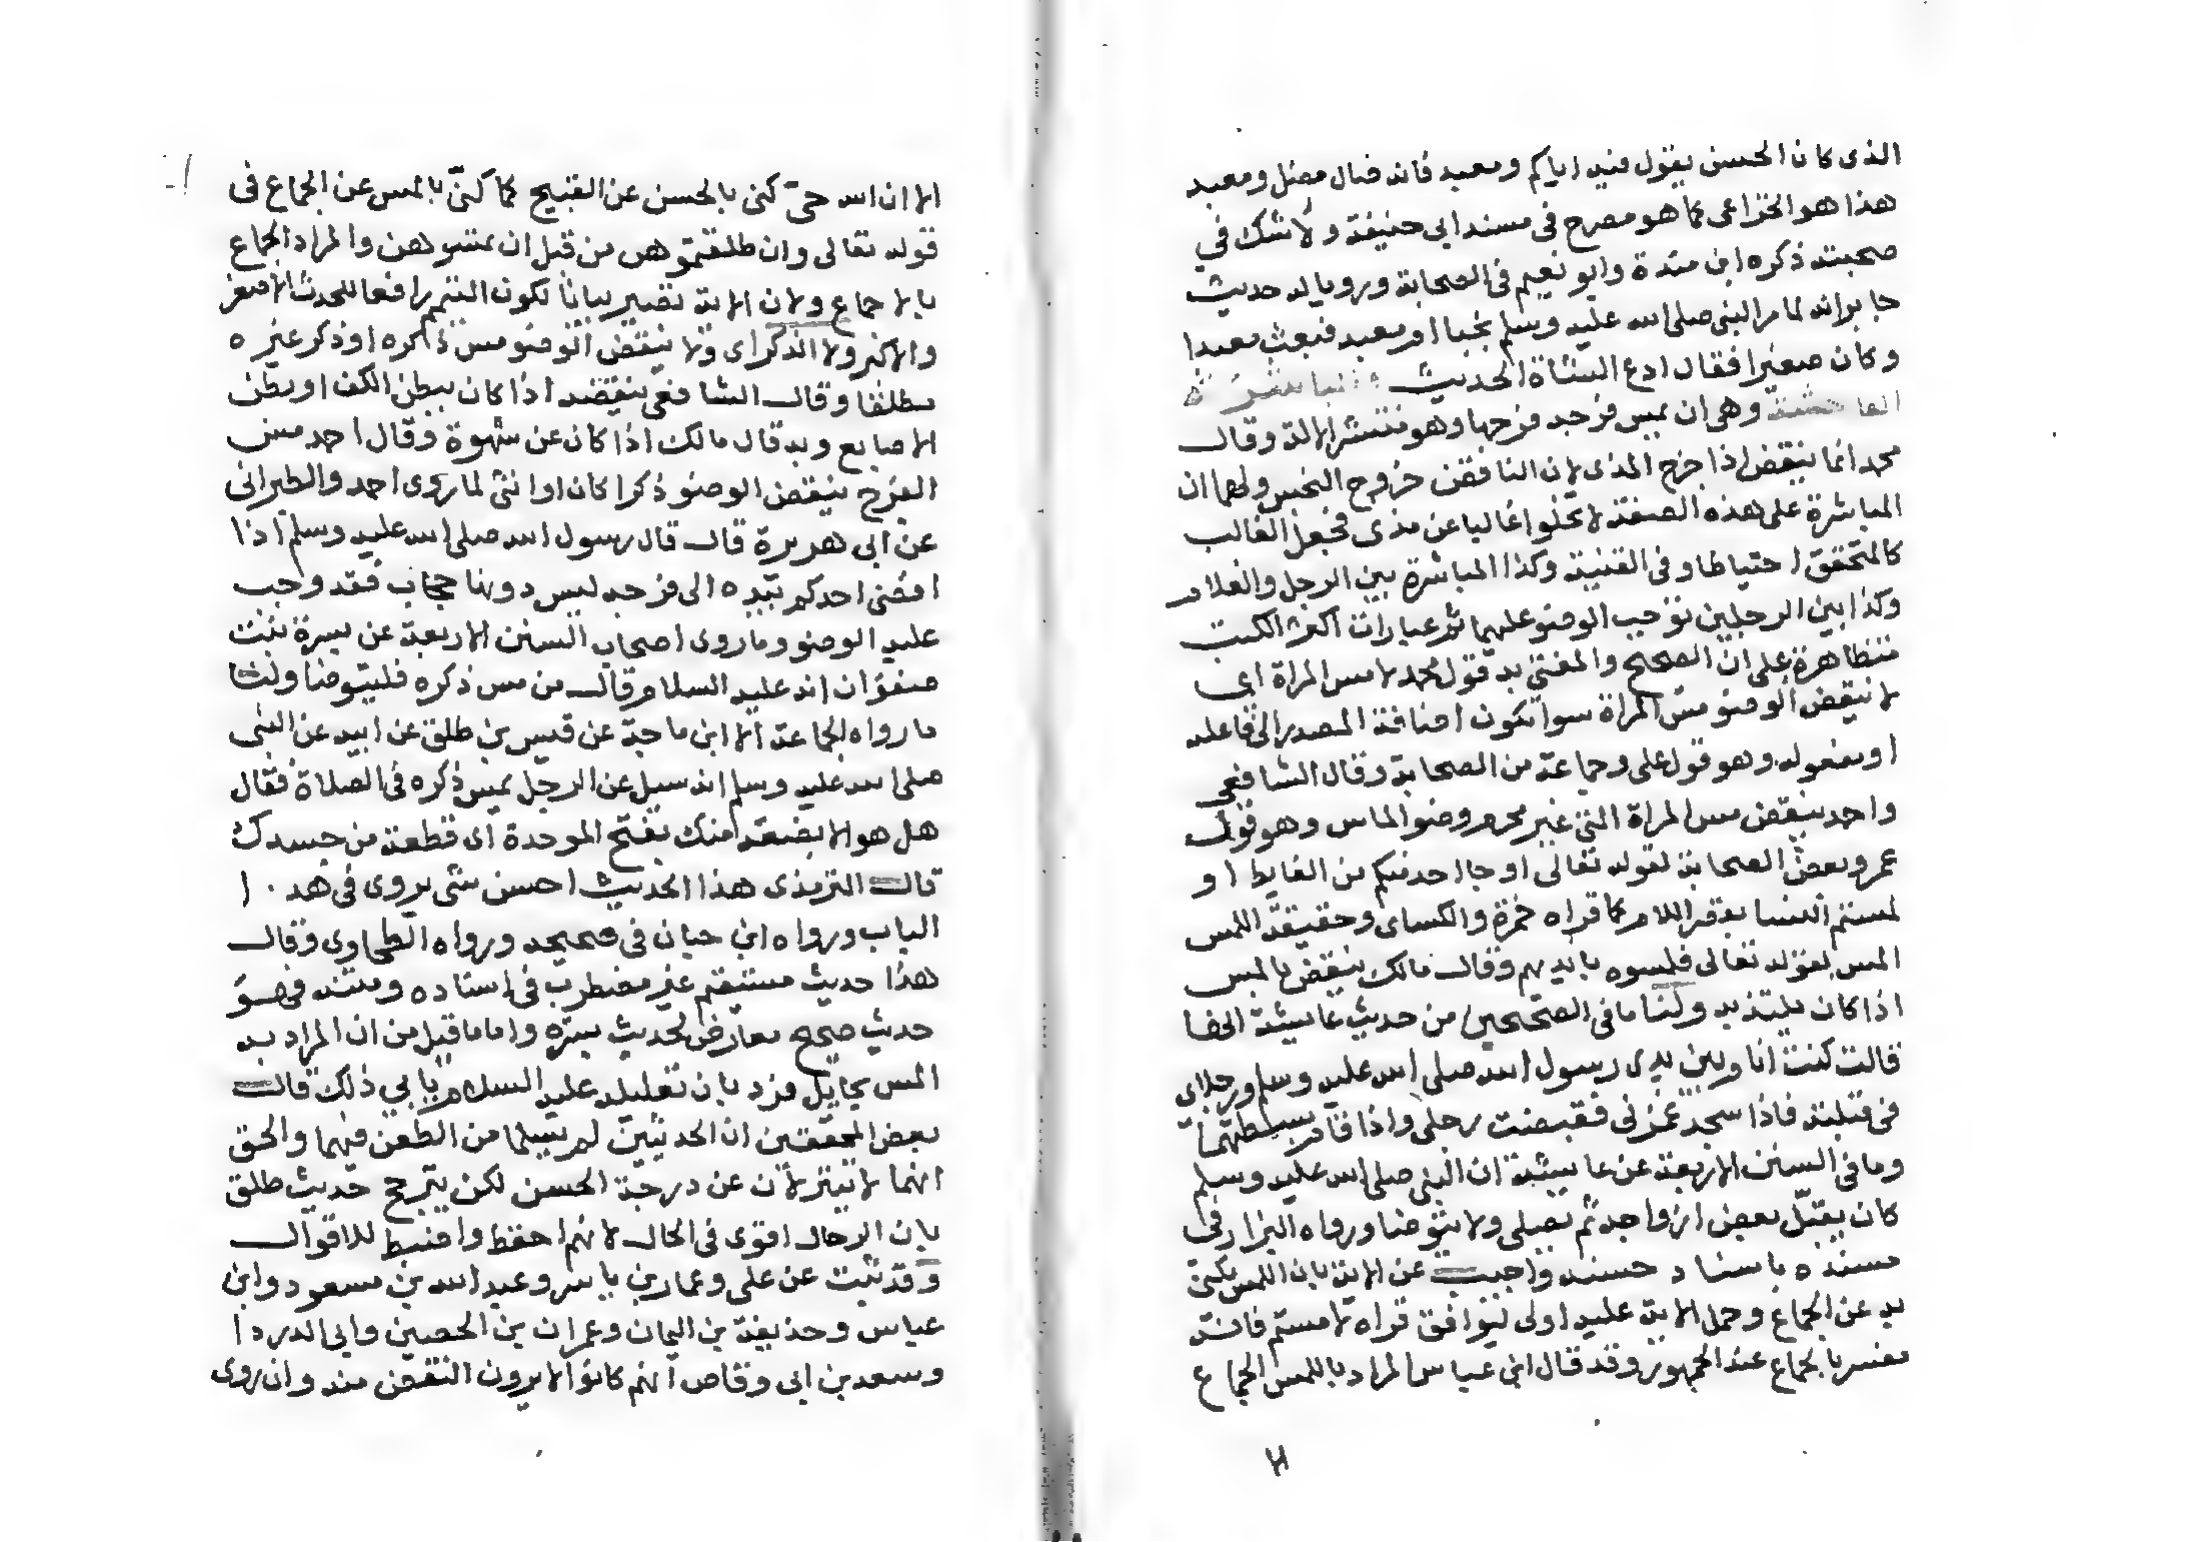 الذى كان الحسن يقول فيه اياكم ومعبد فانه ضال مضل ومعبد
هذا هو الخزاعى كما هو مصرح فى مسند ابى حنيفة ولا شك فى
صحبته ذكره ابن مندة وابو نعيم فى الصحابة ورويا له حديث
جابر انه لما مر النبى صلى الله عليه وسلم بخبا ام معبد فبعث معبدا
وكان صغيرا فقال ادع الشاة الحديث
الفاحشة وهى ان يمس فرجه فرجها وهو منتشر الالة وقال
محمد انما ينقض اذا خرج المذى لان الناقض خروج النجس ولهما ان
المباشرة على هذه الصفة لا تخلوا غالبا عن مذى فجعل الغالب
كالمتحقق احتياطا وفى القنية وكذا المباشرة بين الرجل والغلام
وكذا بين الرجلين توجب الوضو عليهما ثم عبارات اكثر الكتب
متظاهرة على ان الصحيح والمفتى به قول محمد لا مس المراة اى
لا ينقض الوضو مس المراة سوا تكون اضافة المصدر الى فاعله
او مفعوله وهو قول على وجماعة من الصحابة وقال الشافعى
واحمد ينقض مس المراة التى غير محرم وضو الماس وهو قول
عمر وبعض الصحابة لقوله تعالى او جا احد منكم من الغايط او
لمستم النسا بقصر اللام كما قراه حمزة والكساى وحقيقة اللمس
المس لقوله تعالى فلمسوه بايديهم وقال مالك ينقض بالمس
اذا كان يلتذ به ولنا ما فى الصحيحين من حديث عايشة انها
قالت كنت انا وبين يدى رسول الله صلى الله عليه وسلم ورجلاى
فى قبلته فاذا سجد غمزنى فقبضت رجلى واذا قام بسطتهما
وما فى السنن الاربعة عن عايشة ان النبى صلى الله عليه وسلم
كان يقبّل بعض ازواجه ثم يصلى ولا يتوضا ورواه البزار فى
مسنده باسناد حسنه واجيب عن الاية بان اللمس يكنى
به عن الجماع وحمل الاية عليه اولى ليوافق قراة لا مستم فانه
مفسر بالجماع عند الجمهور وقد قال ابن عباس المراد باللمس الجماع
٢١
الا ان الله حىّ كنى بالحسن عن القبيح كما كنّى بالمس عن الجماع فى
قوله تعالى وان طلقتموهن من قبل ان تمسوهن والمراد الجماع
بالاجماع ولان الاية تصير بيانا لكون التيمم رافعا للحدث الاصغر
والاكبر ولا الذكر اى ولا ينقض الوضو مس ذكره او ذكر غيره
مطلقا وقال الشافعى ينقضه اذا كان ببطن الكف او بطن
الاصابع وبه قال مالك اذا كان عن شهوة وقال احمد مس
الفرج ينقض الوضو ذكرا كان او انثى لما روى احمد والطبرانى
عن ابى هريرة قال قال رسول الله صلى الله عليه وسلم اذا
افضى احدكم بيده الى فرجه ليس دونها حجاب فقد وجب
عليه الوضو وما روى اصحاب السنن الاربعة عن بسرة بنت
صفوان انه عليه السلام قال من مس ذكره فليتوضا ولنا
ما رواه الجماعة الا ابن ماجة عن قيس بن طلق عن ابيه عن النبى
صلى الله عليه وسلم انه سيل عن الرجل يمس ذكره فى الصلاة فقال
هل هو الا بضعة منك بفتح الموحدة اى قطعة من جسدك
قال الترمذى هذا الحديث احسن شى يروى فى هذا
الباب ورواه ابن حبان فى صحيحه ورواه الطحاوى وقال
هذا حديث مستقيم غير مضطرب فى اسناده ومتنه فهو
حديث صحيح معارض لحديث بسرة واما ما قيل من ان المراد به
المس بحايل فرد بان تعليله عليه السلام يابى ذلك قال
بعض المحققين ان الحديثين لم يسلما من الطعن فيهما والحق
انهما لا ينزلان عن درجة الحسن لكن يترجح حديث طلق
بان الرجال اقوى فى الحال لانهم احفظ واضبط للاقوال
وقد ثبت عن على وعمار بن ياسر وعبد الله بن مسعود وابن
عباس وحذيفة بن اليمان وعمران بن الحصين وابى الدردا
وسعد بن ابى وقاص انهم كانوا لا يرون النقض منه وان روى